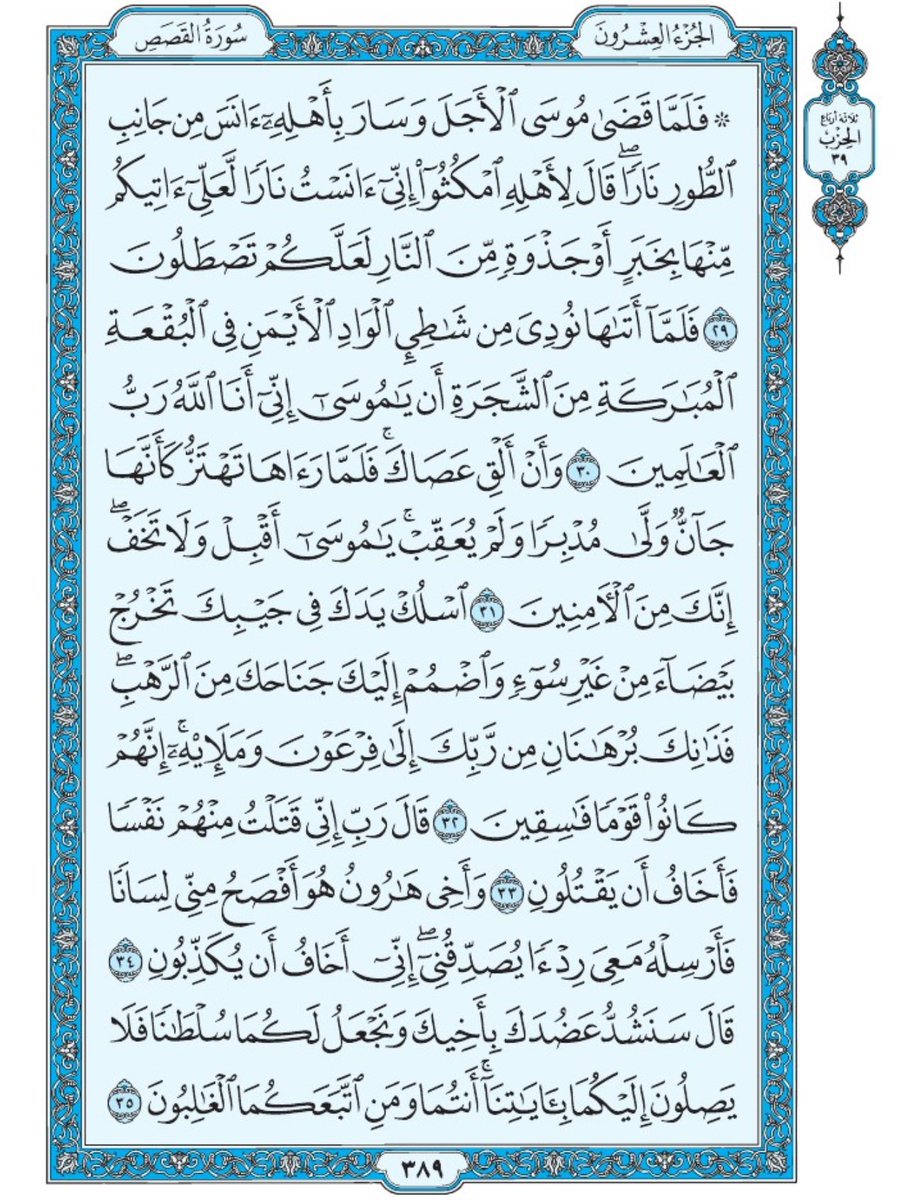 الجُزْءُ العِشْرُونَ
سُورَةُ القَصَصِ
ثلاثة أرباع
الحِزْبُ
٣٩
۞ فَلَمَّا قَضَىٰ مُوسَى ٱلْأَجَلَ وَسَارَ بِأَهْلِهِۦٓ ءَانَسَ مِن جَانِبِ
ٱلطُّورِ نَارًاۖ قَالَ لِأَهْلِهِ ٱمْكُثُوٓا۟ إِنِّىٓ ءَانَسْتُ نَارًا لَّعَلِّىٓ ءَاتِيكُم
مِّنْهَا بِخَبَرٍ أَوْ جَذْوَةٍ مِّنَ ٱلنَّارِ لَعَلَّكُمْ تَصْطَلُونَ
٢٩ فَلَمَّآ أَتَىٰهَا نُودِىَ مِن شَٰطِئِ ٱلْوَادِ ٱلْأَيْمَنِ فِى ٱلْبُقْعَةِ
ٱلْمُبَٰرَكَةِ مِنَ ٱلشَّجَرَةِ أَن يَٰمُوسَىٰٓ إِنِّىٓ أَنَا ٱللَّهُ رَبُّ
ٱلْعَٰلَمِينَ ٣٠ وَأَنْ أَلْقِ عَصَاكَۚ فَلَمَّا رَءَاهَا تَهْتَزُّ كَأَنَّهَا
جَآنٌّ وَلَّىٰ مُدْبِرًا وَلَمْ يُعَقِّبْۚ يَٰمُوسَىٰٓ أَقْبِلْ وَلَا تَخَفْۖ
إِنَّكَ مِنَ ٱلْءَامِنِينَ ٣١ ٱسْلُكْ يَدَكَ فِى جَيْبِكَ تَخْرُجْ
بَيْضَآءَ مِنْ غَيْرِ سُوٓءٍ وَٱضْمُمْ إِلَيْكَ جَنَاحَكَ مِنَ ٱلرَّهْبِۖ
فَذَٰنِكَ بُرْهَٰنَانِ مِن رَّبِّكَ إِلَىٰ فِرْعَوْنَ وَمَلَإِي۟هِۦٓۚ إِنَّهُمْ
كَانُوا۟ قَوْمًا فَٰسِقِينَ ٣٢ قَالَ رَبِّ إِنِّى قَتَلْتُ مِنْهُمْ نَفْسًا
فَأَخَافُ أَن يَقْتُلُونِ ٣٣ وَأَخِى هَٰرُونُ هُوَ أَفْصَحُ مِنِّى لِسَانًا
فَأَرْسِلْهُ مَعِىَ رِدْءًا يُصَدِّقُنِىٓۖ إِنِّىٓ أَخَافُ أَن يُكَذِّبُونِ ٣٤
قَالَ سَنَشُدُّ عَضُدَكَ بِأَخِيكَ وَنَجْعَلُ لَكُمَا سُلْطَٰنًا فَلَا
يَصِلُونَ إِلَيْكُمَا بِـَٔايَٰتِنَآۚ أَنتُمَا وَمَنِ ٱتَّبَعَكُمَا ٱلْغَٰلِبُونَ ٣٥
٣٨٩